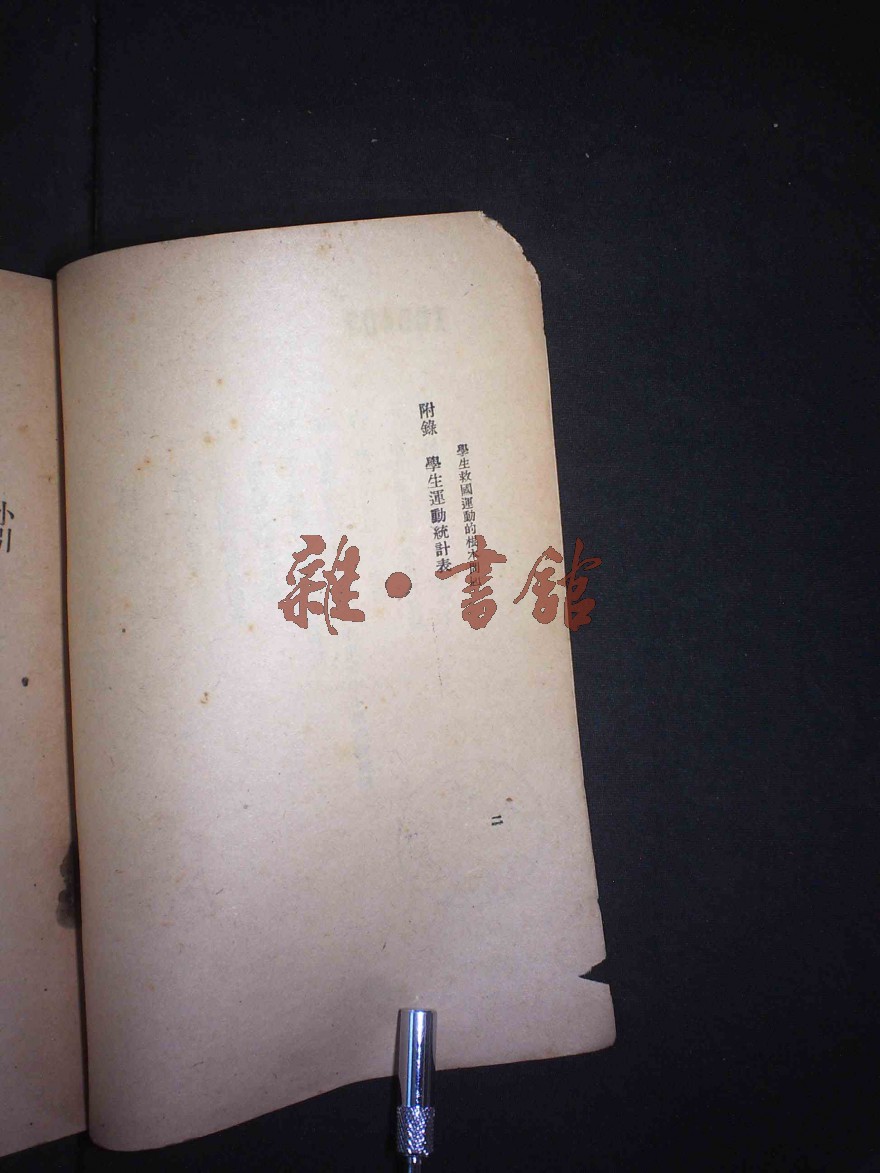 學生救國運動的根本問題
附錄　學生運動統計表
二
小引
雜·書館